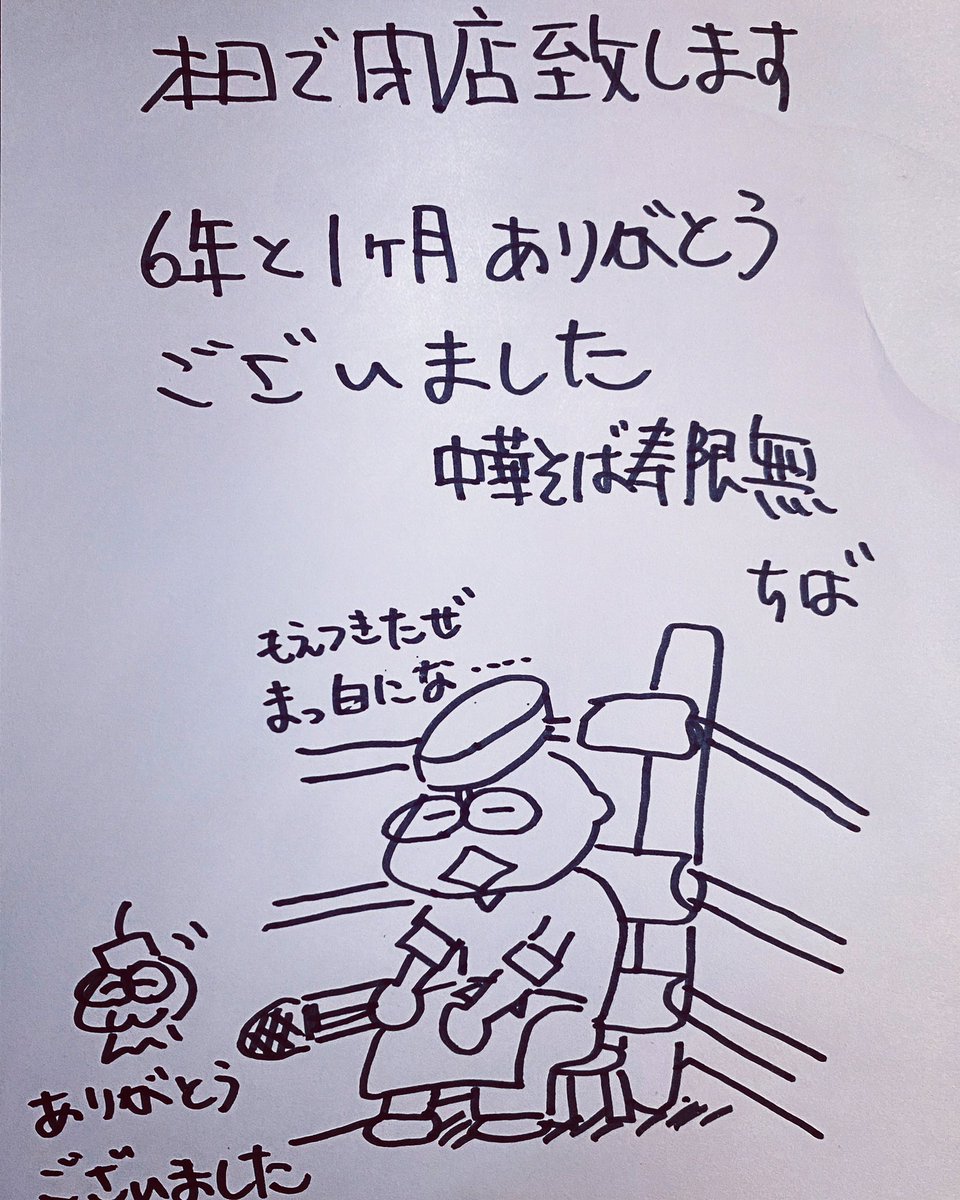 本日で閉店致します
6年と1ヶ月ありがとう
ございました
中華そば寿限無
ちば
もえつきたぜ
まっ白にな……
ありがとう
ございました